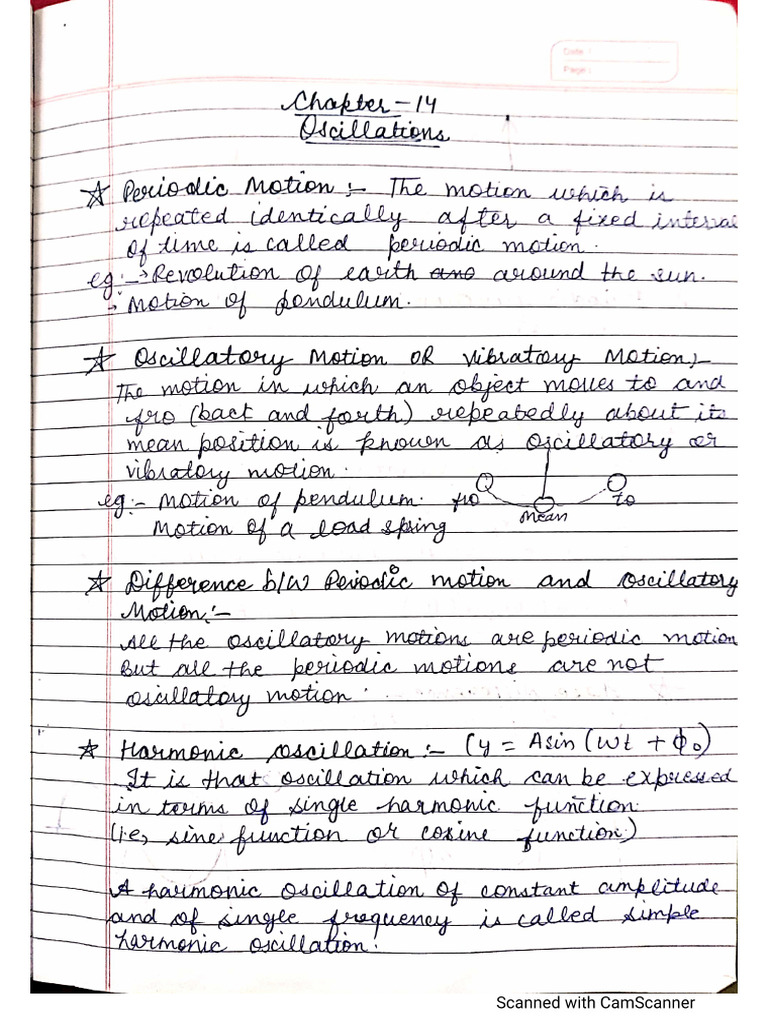 Date :
Page :
Chapter - 14
Oscillations
☆ Periodic Motion :- The motion which is
repeated identically after a fixed interval
of time is called periodic motion.
eg :- → Revolution of earth ano around the sun.
→ Motion of pendulum.
☆ Oscillatory Motion OR Vibratory Motion :-
The motion in which an object moves to and
fro (bact and forth) repeatedly about its
mean position is known as oscillatory or
vibratory motion.
eg :- Motion of pendulum. fro mean to
Motion of a load spring
☆ Difference b/w Periodic motion and oscillatory
Motion :-
All the oscillatory motions are periodic motion
But all the periodic motions are not
oscillatory motion.
☆ Harmonic oscillation :- (y = A sin (ωt + ϕ₀)
It is that oscillation which can be expressed
in terms of single harmonic function.
(i.e, sine function or cosine function.)
A harmonic oscillation of constant amplitude
and of single frequency is called simple
harmonic oscillation.
Scanned with CamScanner